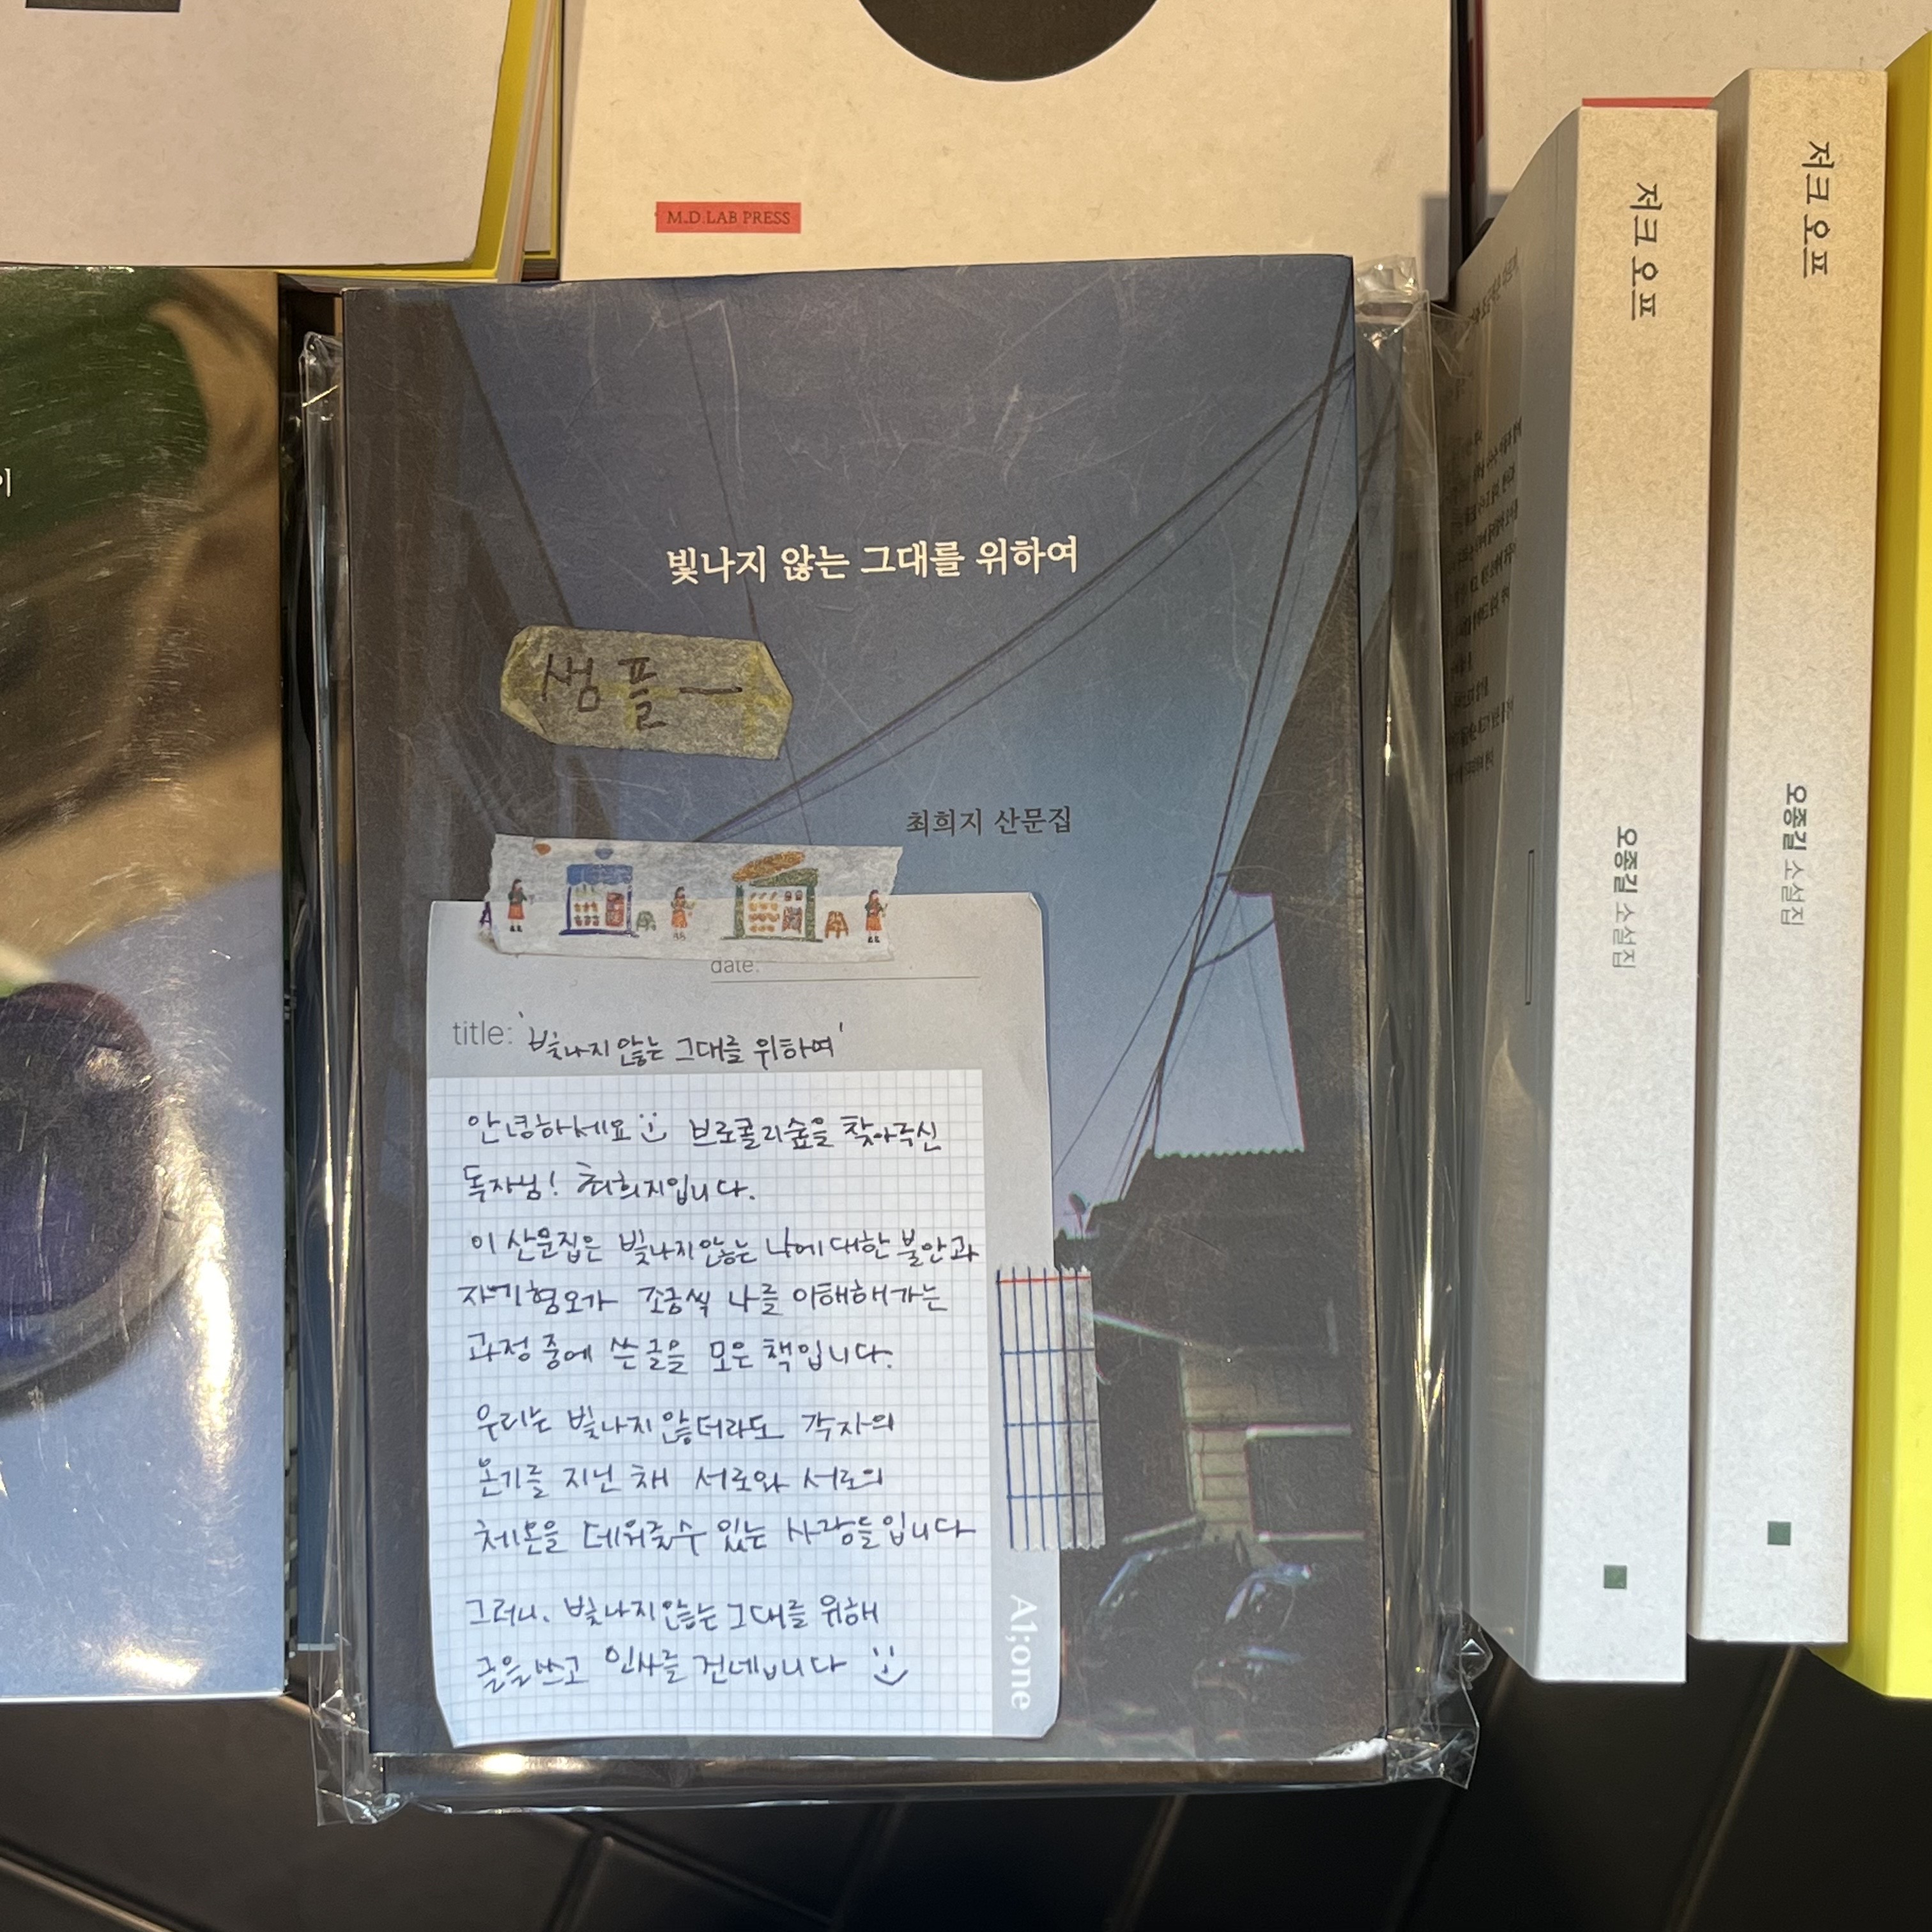 M.D.LAB PRESS
빛나지 않는 그대를 위하여
샘플
최희지 산문집
date:
title: '빛나지 않는 그대를 위하여'
안녕하세요 브로콜리숲을 찾아주신
독자님! 최희지입니다.
이 산문집은 빛나지않는 나에 대한 불안과
자기혐오가 조금씩 나를 이해해가는
과정 중에 쓴 글을 모은 책입니다.
우리는 빛나지 않더라도 각자의
온기를 지닌 채 서로와 서로의
체온을 데워줄수 있는 사람들입니다
그러니, 빛나지않는 그대를 위해
글을 쓰고 인사를 건네봅니다
A1;one
저크 오프
오종길 소설집
저크 오프
오종길 소설집